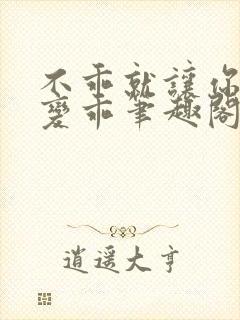 不乖就讓你
變乖筆趣閣
逍遥大亨